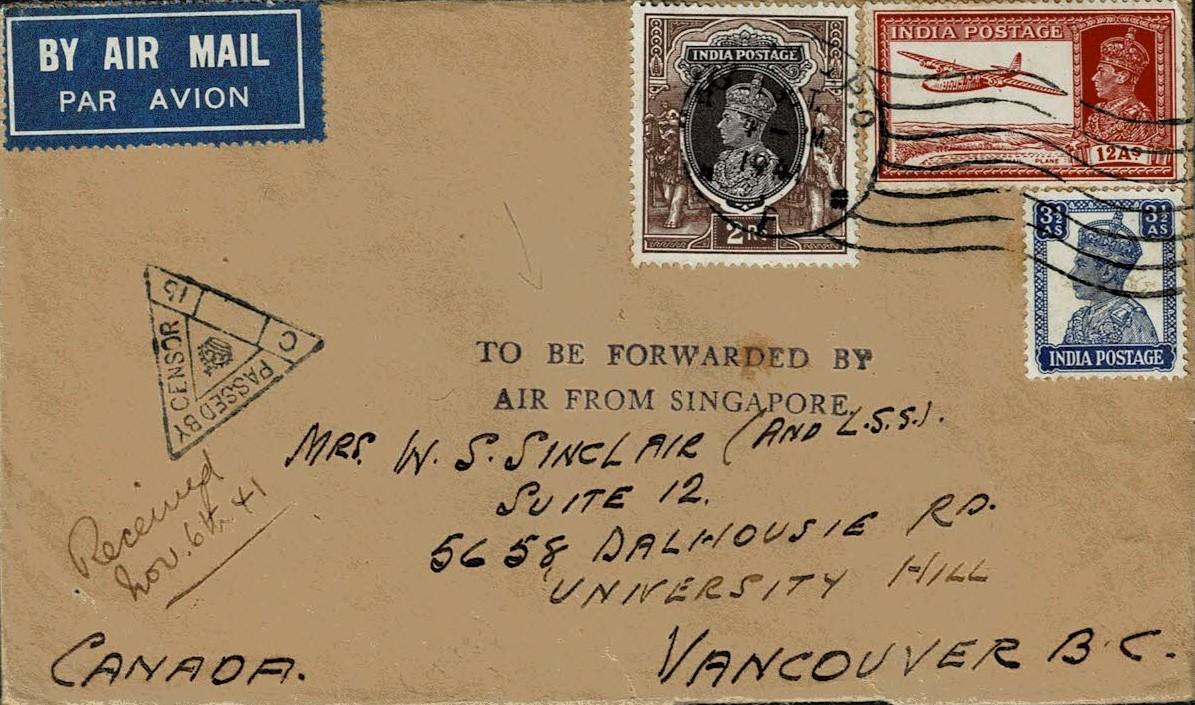 BY AIR MAIL
PAR AVION
INDIA POSTAGE
2 Rs
INDIA POSTAGE
PLANE
12 As
3½ AS
3½ AS
INDIA POSTAGE
P.O.
194
15
C
PASSED BY CENSOR
TO BE FORWARDED BY
AIR FROM SINGAPORE.
MRS. W. S. SINCLAIR (AND L.S.S.).
SUITE 12.
5658 DALHOUSIE RD.
UNIVERSITY HILL
VANCOUVER B.C.
CANADA.
Received
Nov. 6th 41